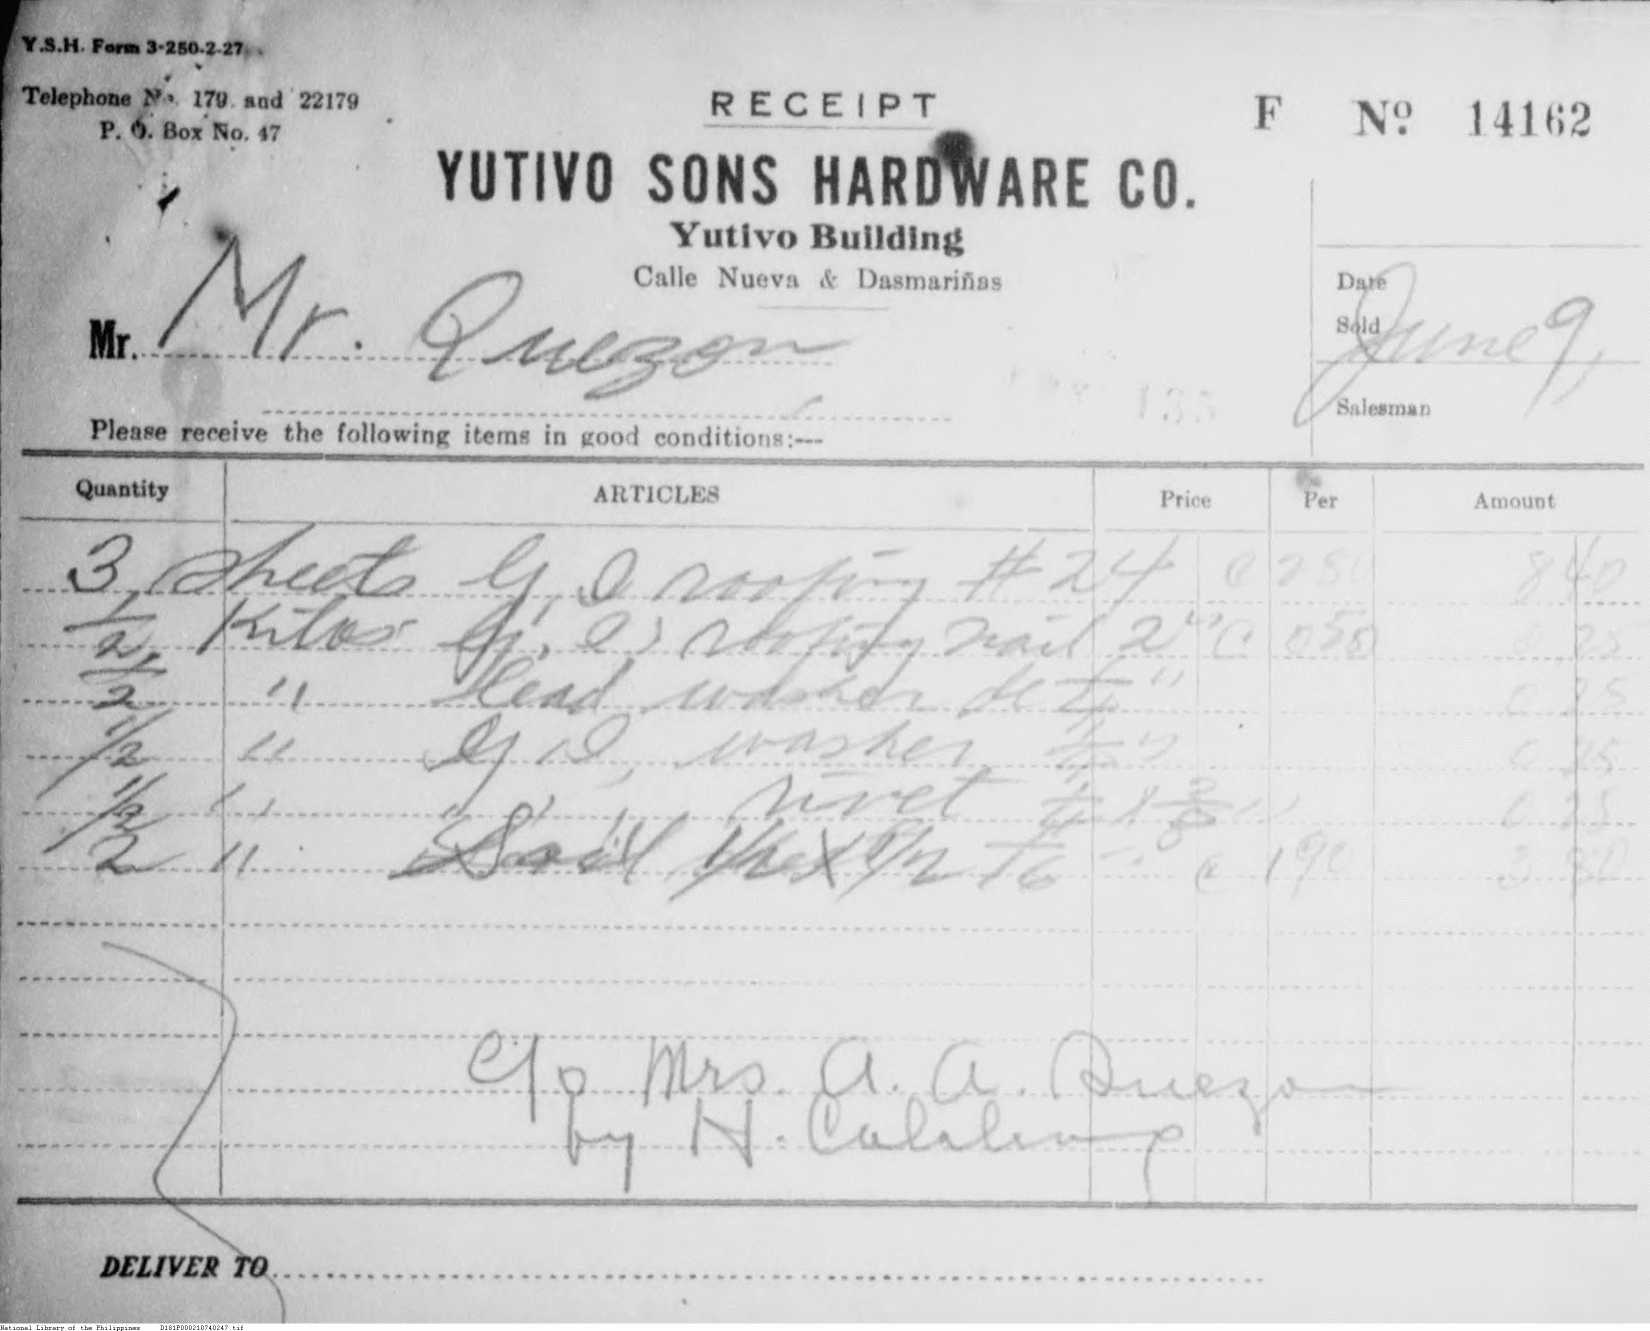 Y.S.H. Form 3-250-2-27
Telephone No. 179 and 22179
P. O. Box No. 47
RECEIPT
F No 14162
YUTIVO SONS HARDWARE CO.
Yutivo Building
Calle Nueva & Dasmariñas
Mr. Mr. Quezon
Date
Sold June 9,
Salesman
Please receive the following items in good conditions:---
Quantity ARTICLES Price Per Amount
3 sheets G. I. roofing #24 @ 280 8 40
1/2 Kilos G. I. roofing nail 2" @ 050 0 25
1/2 " Lead washer de 1/4" 0 25
1/2 " G I. washer 1/4" 0 25
1/2 " " " rivet 1/4 x 3/8" 0 25
2 " @ 190 3 80
c/o Mrs. A. A. Quezon
by H.
DELIVER TO
National Library of the Philippines D181P000210740247.tif